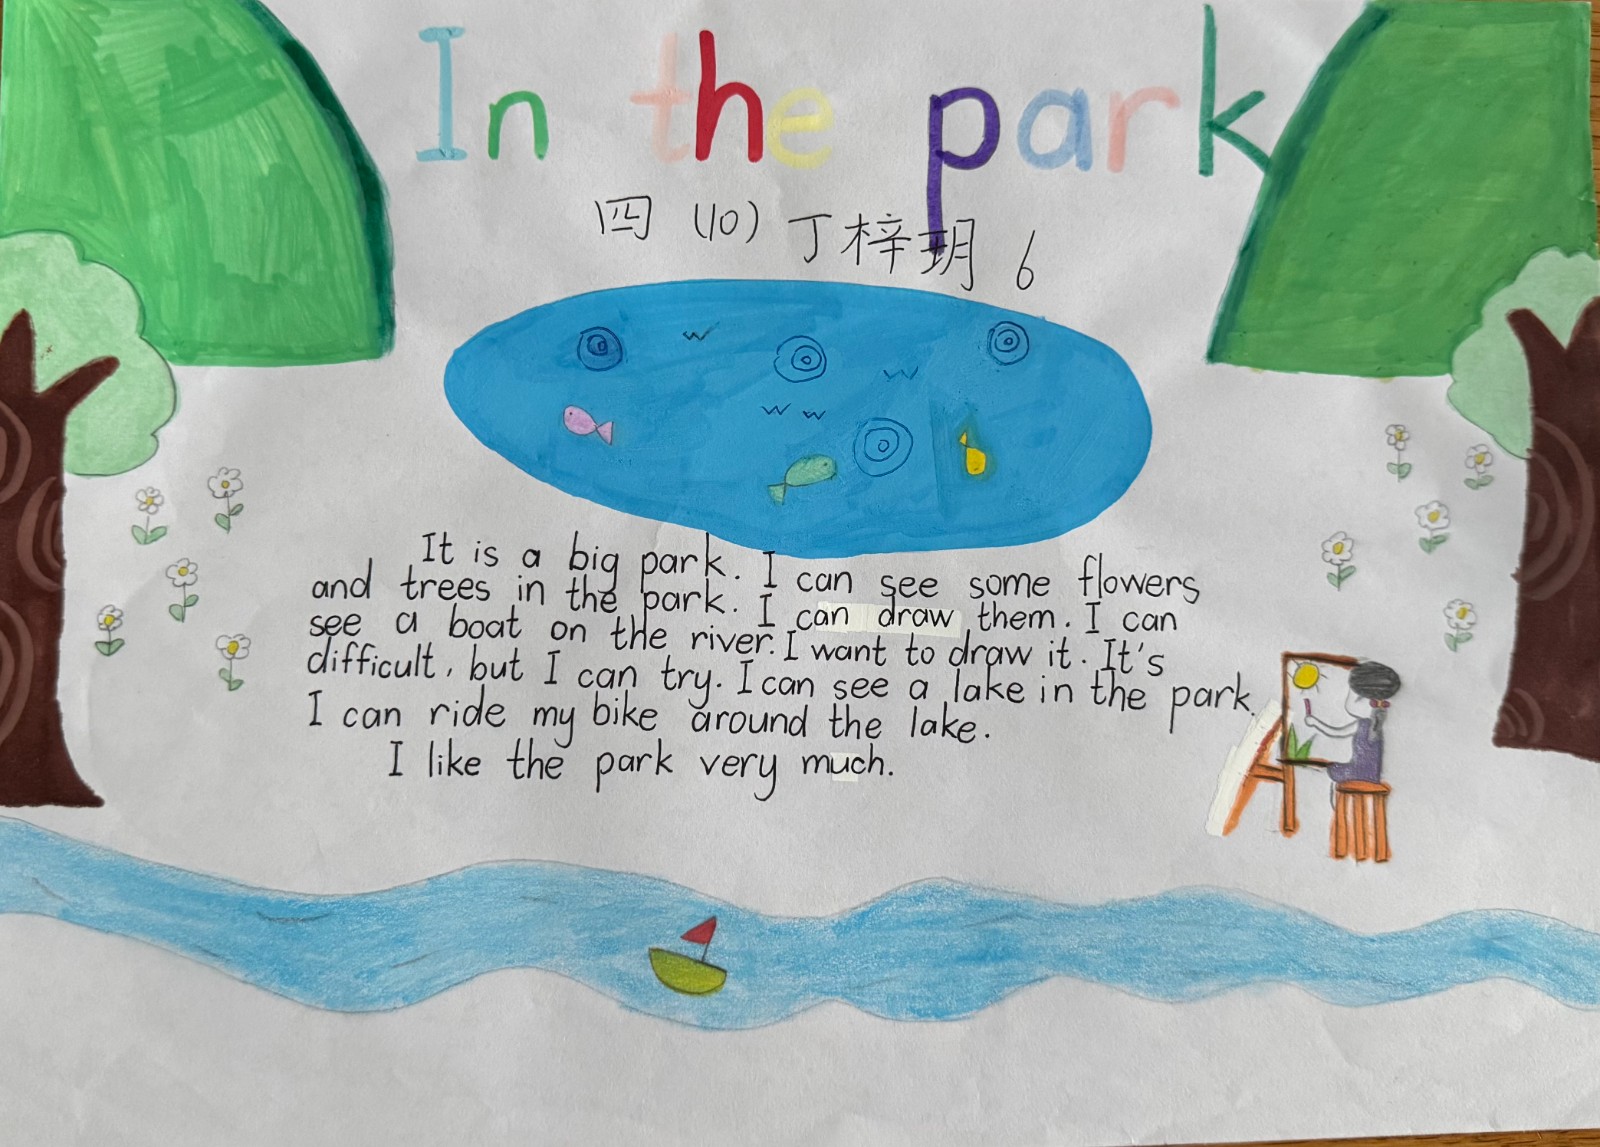 In the park
四 (10) 丁梓玥 6
It is a big park. I can see some flowers
and trees in the park. I can draw them. I can
see a boat on the river. I want to draw it. It's
difficult, but I can try. I can see a lake in the park.
I can ride my bike around the lake.
I like the park very much.